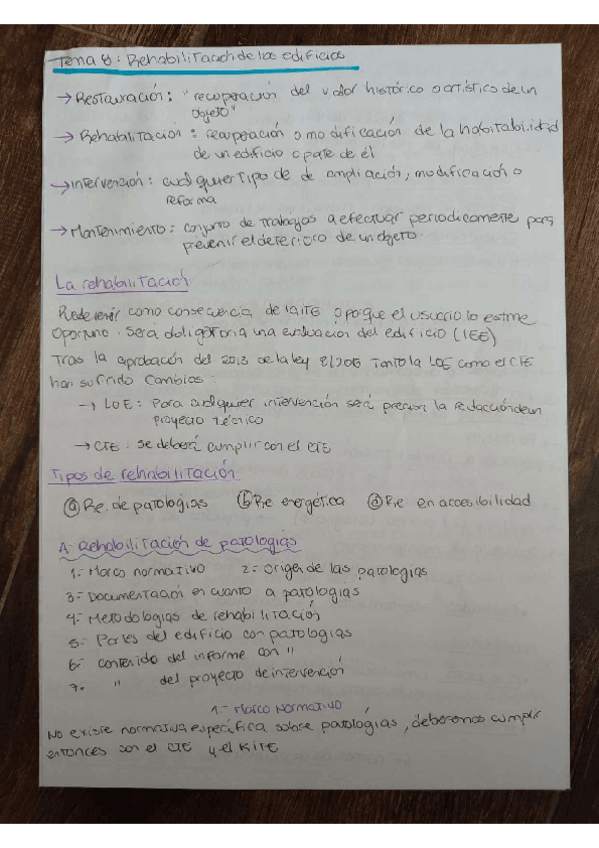 Tema 8: Rehabilitación de los edificios
→ Restauración: "recuperación del valor histórico o artístico de un
objeto"
→ Rehabilitación: recuperación o modificación de la habitabilidad
de un edificio o parte de él
→ Intervención: cualquier tipo de de ampliación, modificación o
reforma
→ Mantenimiento: conjunto de trabajos a efectuar periodicamente para
prevenir el deterioro de un objeto.
La rehabilitación
Puede venir como consecuencia de la ITE o porque el usuario lo estime
oportuno. Será obligatoria una evaluación del edificio (IEE)
Tras la aprobación del 2013 de la ley 8/2013 tanto la LOE como el CTE
han sufrido cambios:
→ LOE: Para cualquier intervención será precisa la redacción de un
proyecto técnico
→ CTE: Se deberá cumplir con el CTE
Tipos de rehabilitación
ⓐ Re. de patologías ⓑ Re energética ⓓ Re en accesibilidad
A- Rehabilitación de patologías
1- Marco normativo 2- origen de las patologías
3- Documentación en cuanto a patologías
4- Metodologías de rehabilitación
5- Partes del edificio con patologías
6- contenido del informe con "
7- " del proyecto de intervención
1- Marco Normativo
No existe normativa específica sobre patologías, deberemos cumplir
entonces con el CTE y el RITE